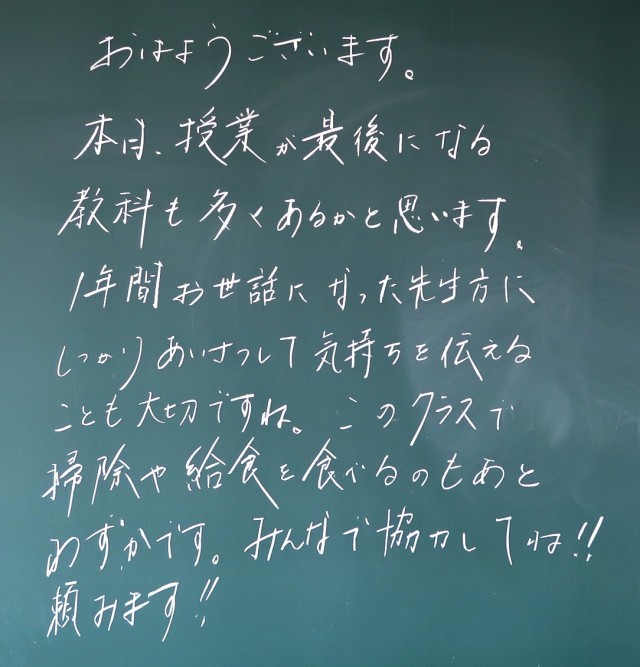 おはようございます。
本日、授業が最後になる
教科も多くあるかと思います。
1年間お世話になった先生方に
しっかりあいさつして気持ちを伝える
ことも大切ですね。このクラスで
掃除や給食を食べるのもあと
わずかです。みんなで協力してね!!
頼みます!!